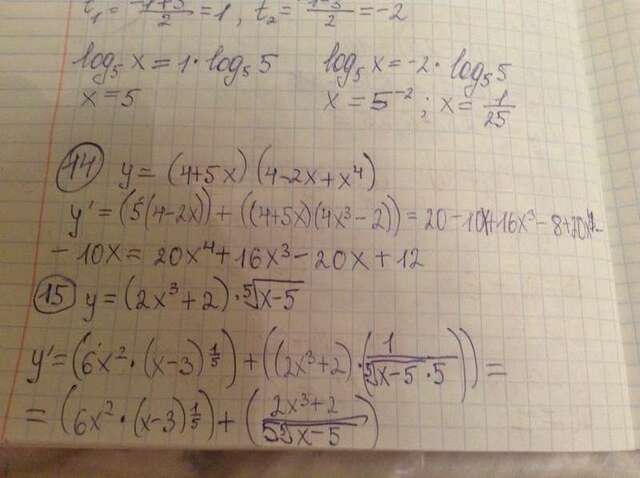 t₁ = (-1+3)/2 = 1, t₂ = (-1-3)/2 = -2
log₅ x = 1 · log₅ 5    log₅ x = -2 · log₅ 5
x = 5    x = 5⁻² ; x = 1/25
14 y = (4+5x)(4-2x+x⁴)
y' = (5(4-2x)) + ((4+5x)(4x³-2)) = 20-10x+16x³-8+20x⁴-
-10x = 20x⁴+16x³-20x+12
15 y = (2x³+2) · ⁵√(x-5)
y' = (6x² · (x-3)^(1/5)) + ((2x³+2) · (1/(⁵√(x-5 · 5)))) =
= (6x² · (x-3)^(1/5)) + ((2x³+2)/(5 ⁵√(x-5)))